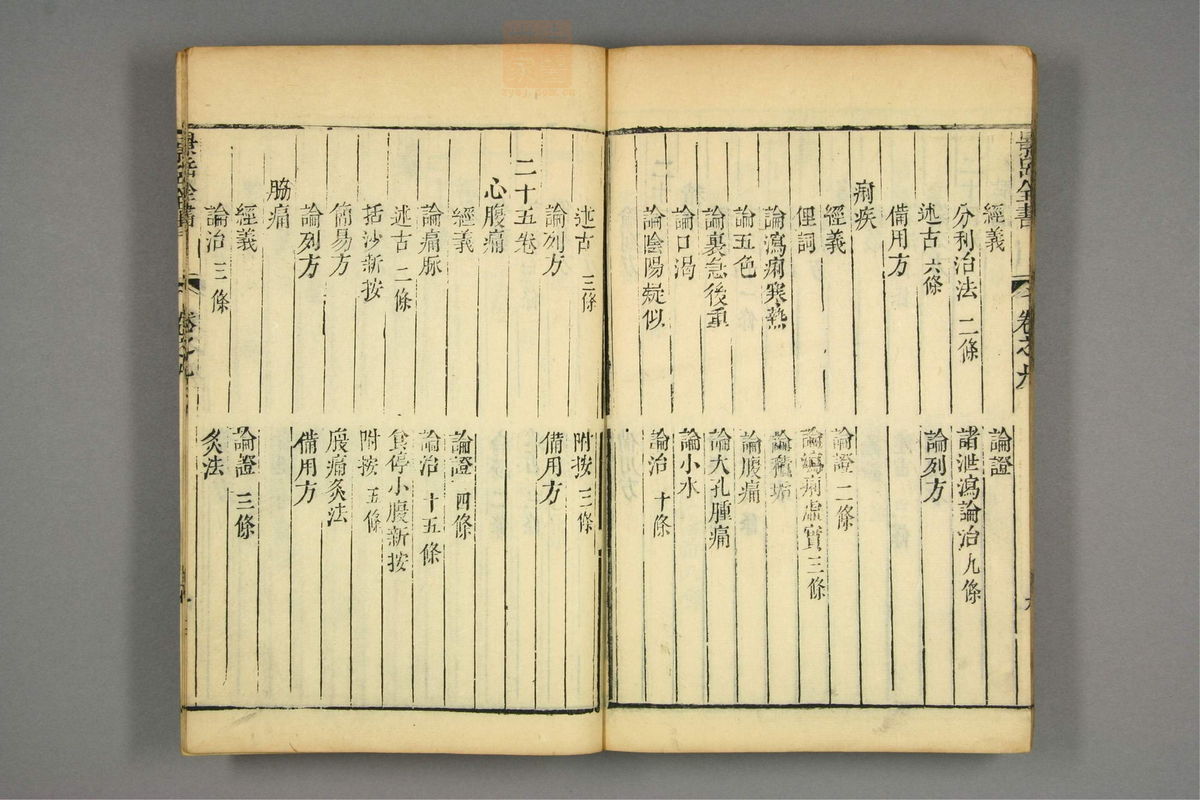 景岳全書
經義
論證
分利治法 二條
諸泄瀉論治 九條
述古 六條
論列方
備用方
痢疾
經義
論證 二條
俚詞
論瀉痢虛實 三條
論瀉痢寒熱
論積垢
論五色
論腹痛
論裏急後重
論大孔腫痛
論口渴
論小水
論陰陽疑似
論治 十條
述古 三條
附按 三條
論列方
備用方
二十五卷
心腹痛
經義
論證 四條
論痛脈
論治 十五條
述古 二條
食停小腹新按
括沙新按
附按 五條
簡易方
腹痛灸法
論列方
備用方
脇痛
經義
論證 三條
論治 三條
灸法
景岳全書